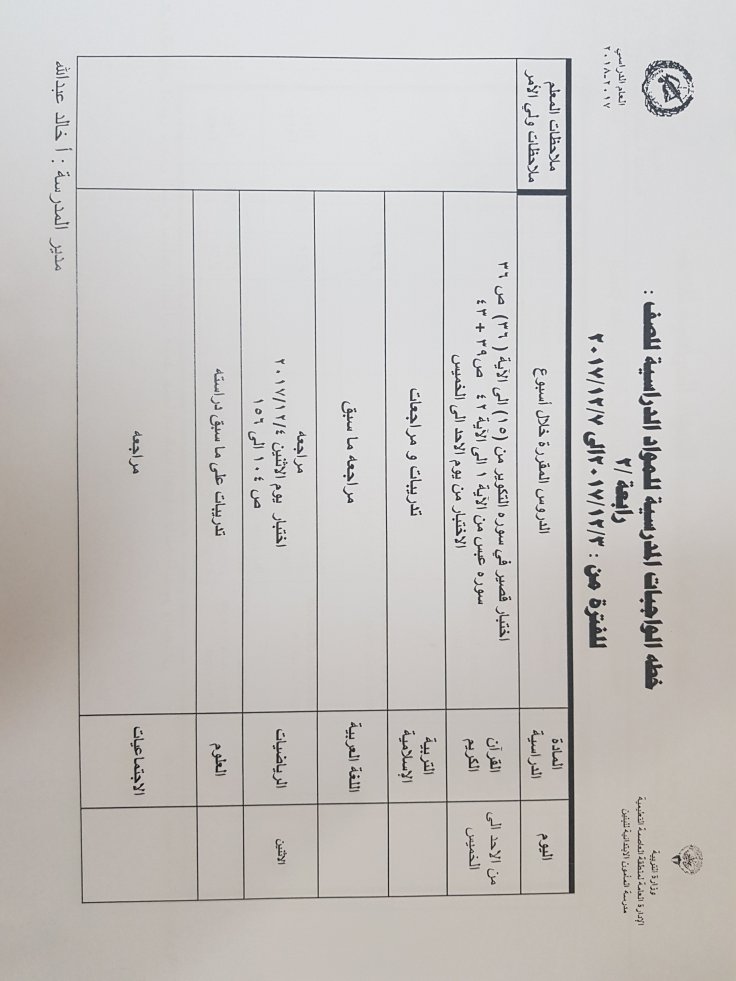 وزارة التربية
الإدارة العامة لمنطقة العاصمة التعليمية
العام الدراسي
٢٠١٧-٢٠١٨
خطه الواجبات المدرسية للمواد الدراسية للصف :
رابعة /٢
للفترة من : ٢٠١٧/١٢/٣ الى ٢٠١٧/١٢/٧
اليوم
المادة
الدراسية
الدروس المقررة خلال أسبوع
ملاحظات المعلم
ملاحظات ولي الأمر
من الاحد الى
الخميس
القرآن
الكريم
اختبار قصير في سوره التكوير من (١٥) الى الآية (٣٦) ص ٣٦
سوره عبس من الآية ١ الى الآية ٤٢ ص٣٩ + ٤٣
الاختبار من يوم الاحد الى الخميس
التربية
الإسلامية
تدريبات و مراجعات
اللغة العربية
مراجعه ما سبق
الاثنين
الرياضيات
مراجعه
اختبار يوم الاثنين ٢٠١٧/١٢/٤
ص ١٠٤ الى ١٥٦
العلوم
تدريبات على ما سبق دراسته
الاجتماعيات
مراجعه
مدير المدرسة : أ خالد عبدالله